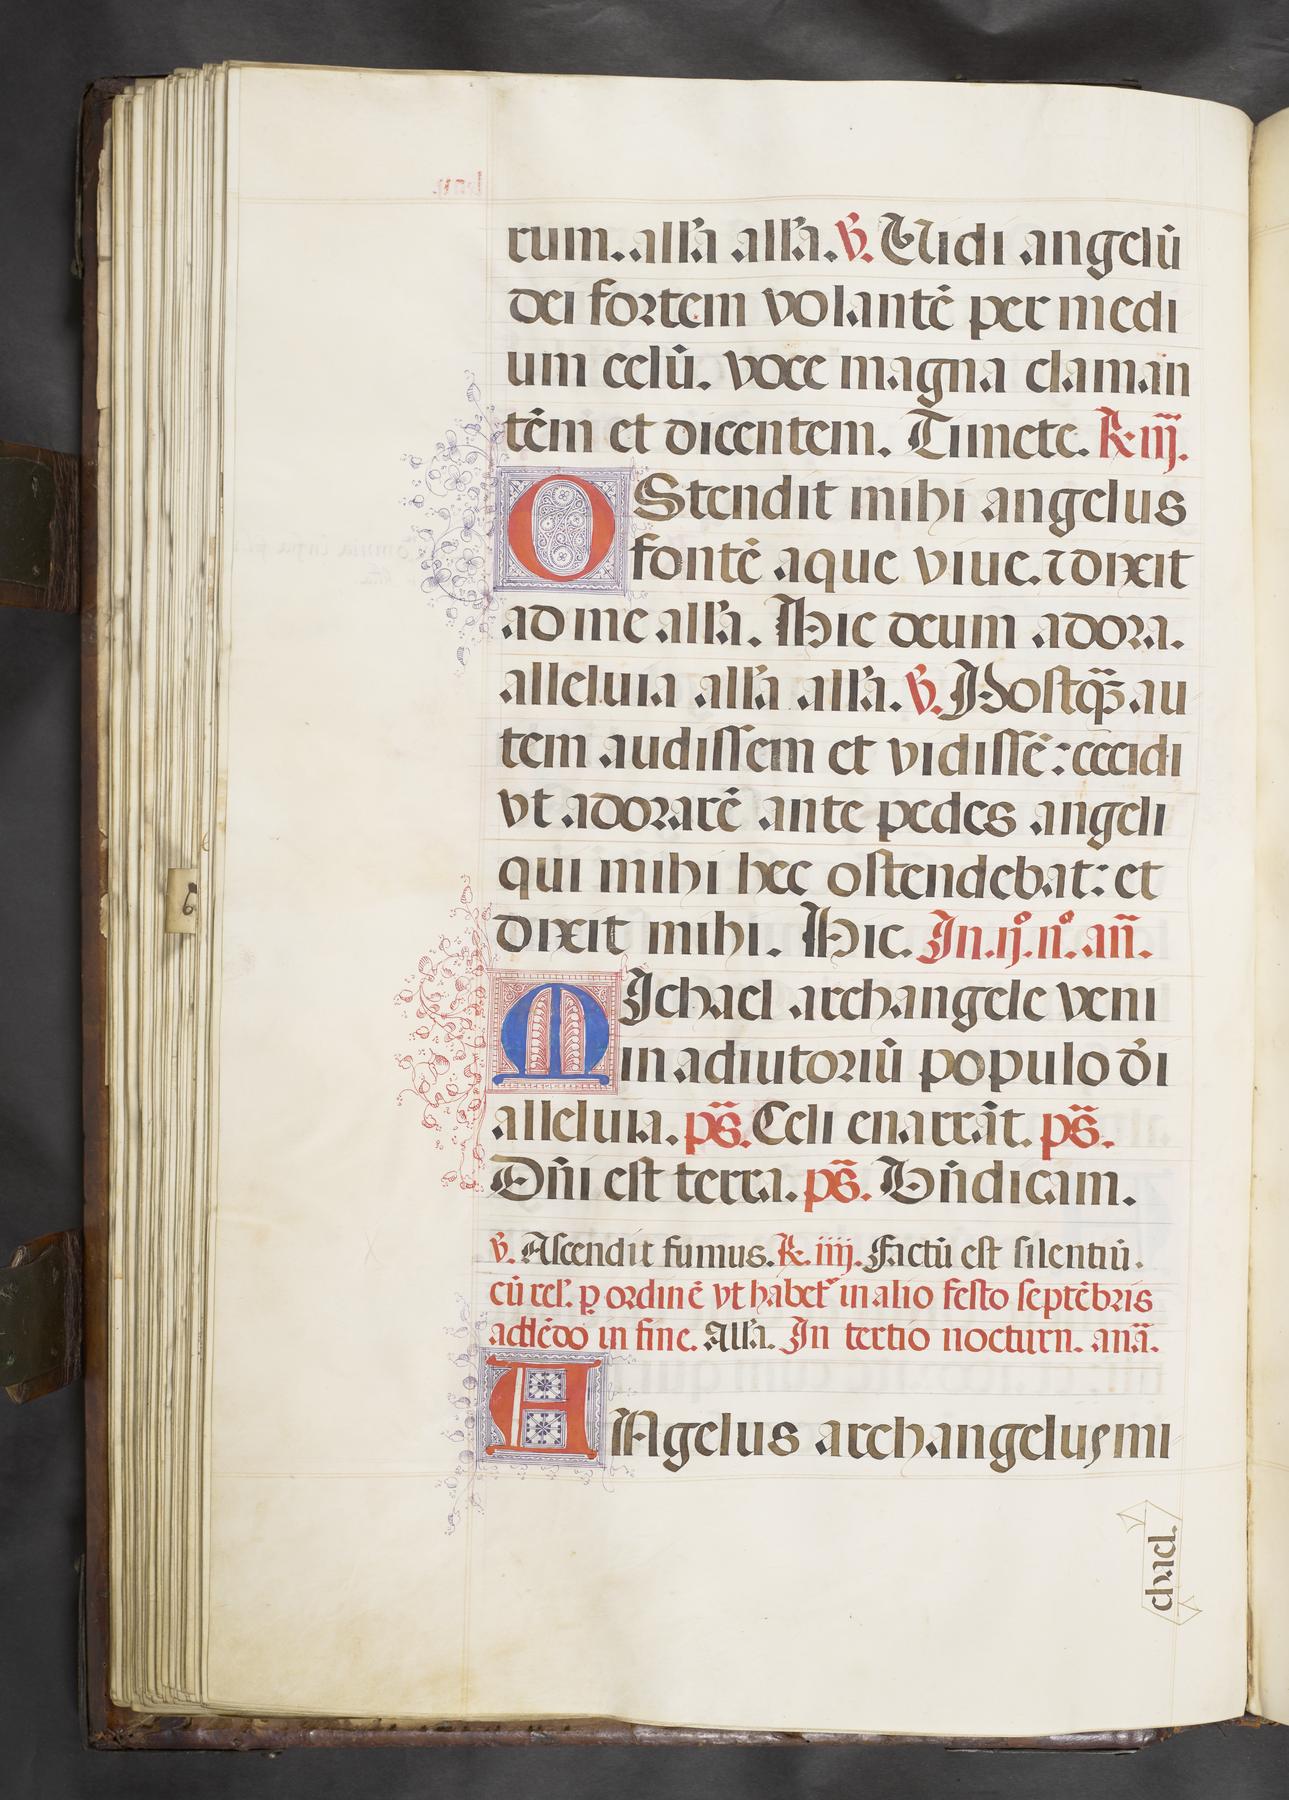 rum. all'a all'a. V. Uidi angelū
dei fortem volantē per medi
um celū. voce magna claman
tēm et dicentem. Timete. R. iij.
OStendit mihi angelus
fontē aque viue. ⁊ dixit
ad me all'a. Hic deum adora.
alleluia all'a all'a. V. Postq̄ꝫ au
tem audissem et vidissē: cecidi
vt adorarē ante pedes angeli
qui mihi hec ostendebat: et
dixit mihi. Hic. In. ij. nº. an̄.
MIchael archangele veni
in adiutoriū populo d̄i
alleluia. ps̄. Celi enarrāt. ps̄.
Dn̄i est terra. ps̄. Bn̄dicam.
V. Ascendit fumus. R. iiij. Factū est silentiū.
cū rel'. ꝑ ordinē vt habet' in alio festo septēbris
addēdo in fine. All'a. In tertio nocturn. anā.
ANgelus archangelus mi
chael.